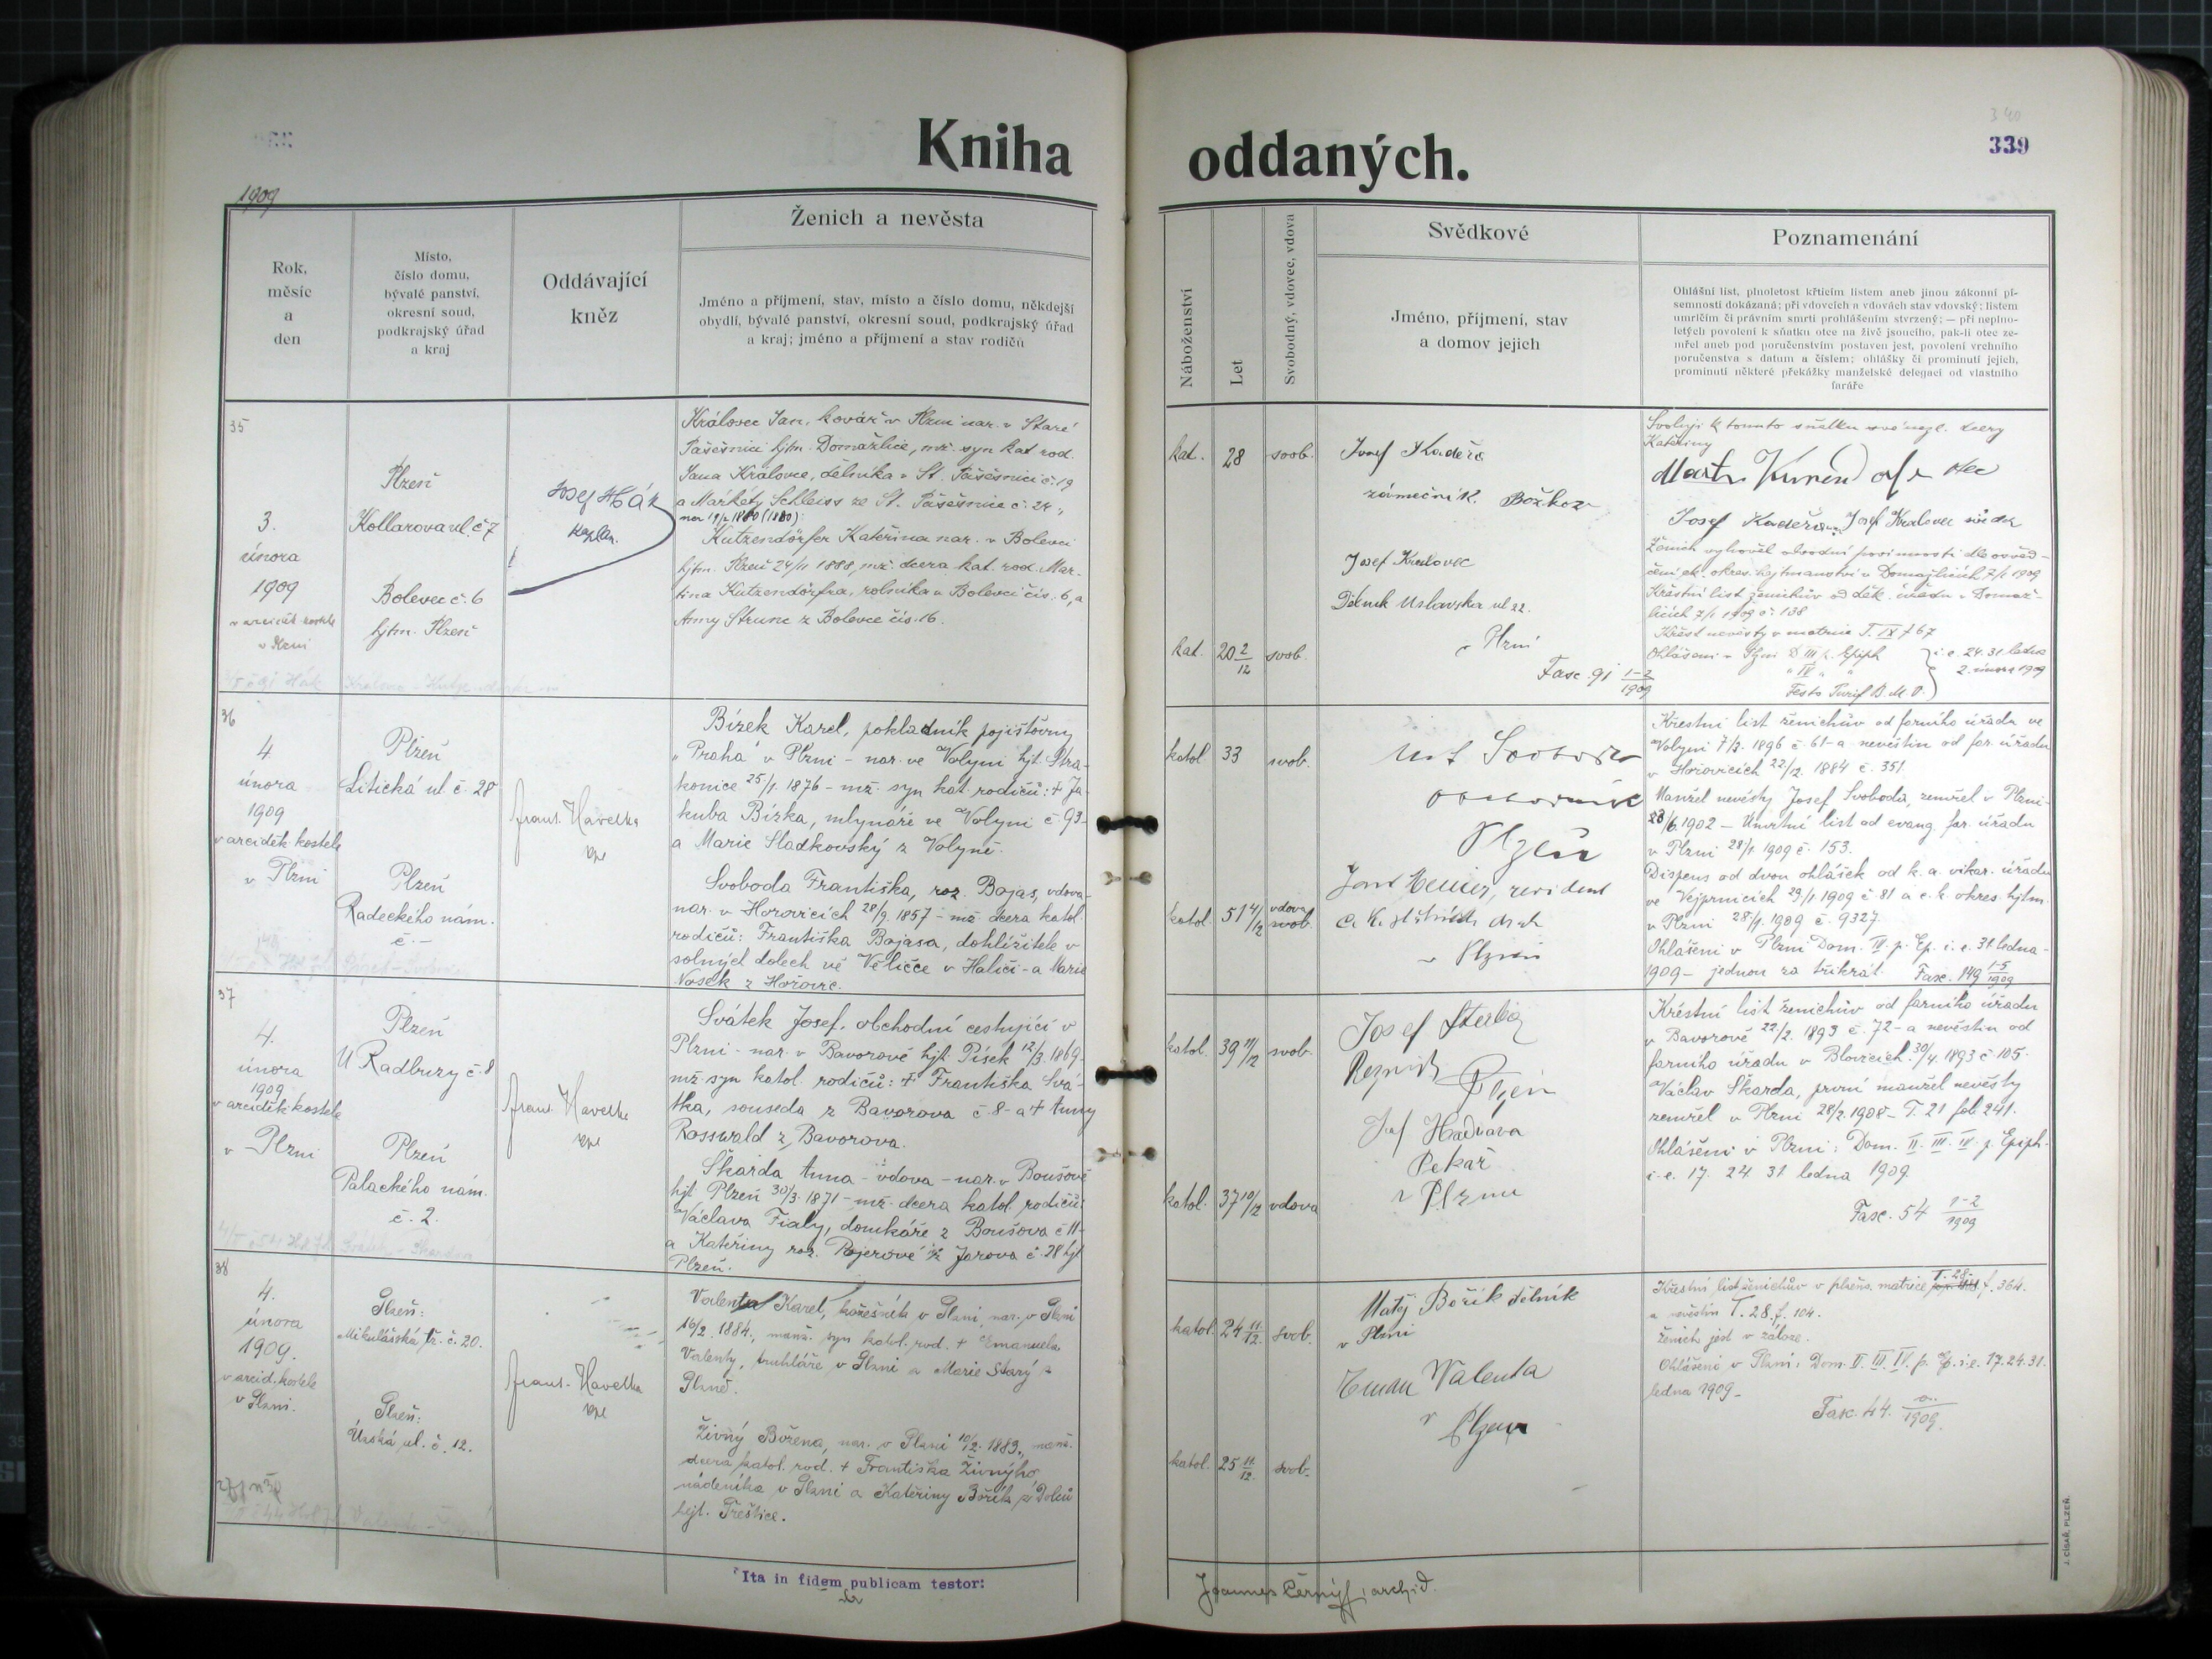 Kniha oddaných.
340
339
1909
Rok,
měsíc
a
den
Místo,
číslo domu,
bývalé panství,
okresní soud,
podkrajský úřad
a kraj
Oddávající
kněz
Ženich a nevěsta
Jméno a příjmení, stav, místo a číslo domu, někdejší
obydlí, bývalé panství, okresní soud, podkrajský úřad
a kraj; jméno a příjmení a stav rodičů
Náboženství
Let
Svobodný, vdovec, vdova
Svědkové
Jméno, příjmení, stav
a domov jejich
Poznamenání
Ohlášní list, plnoletost křticím listem aneb jinou zákonní pí-
semností dokázaná; při vdovcích a vdovách stav vdovský; listem
umrlčím či právním smrti prohlášením stvrzený; — při neplno-
letých povolení k sňatku otce na živě jsoucího, pak-li otec ze-
mřel aneb pod poručenstvím postaven jest, povolení vrchního
poručenstva s datum a číslem; ohlášky či prominutí jejich,
prominutí některé překážky manželské delegací od vlastního
faráře
35
3.
února
1909
v arciděk. kostele
v Plzni
Plzeň
Kollarova ul. č. 7
Bolevec č. 6
hjtm. Plzeň
Josef Hák
kaplan.
Královec Jan, kovář v Plzni nar. v Staré
Pasěšnici hjtm. Domažlice, mž. syn kat. rod.
Jana Královce, dělníka v St. Pasěšnici č. 19
a Markéty Schleiss ze St. Pasěšnice č. 24,
nar 19/2 1880 (1880)
Kutzendörfer Kateřina nar. v Bolevci
hjtm. Plzeň 24/11 1888, mž. dcera kat. rod. Mar-
tina Kutzendörfra, rolníka v Bolevci čís. 6, a
Anny Strunc z Bolevce čís. 16.
kat. 28 svob.
kat. 20 2/12 svob.
Josef Kadeřa
zámečník. Božkov
Josef Kralovec
Dělník Uslavska ul 22.
v Plzni
Fasc. 91 1-2/1909
Svoluji k tomuto sňatku své nezl. dcery
Kateřiny
otec
Josef Kadeřa Josef Kralovec svědek
Ženich vyhověl odvodní povinnosti dle osvěd-
čení ck. okres. hejtmanství v Domažlicích 7/1 1909
Křestní list ženichův od děk. úřadu v Domaž-
licích 7/1 1909 č. 138
Křest nevěsty v matrice T. IX f 67
Ohlášeni v Plzni D III p. Epiph
" IV " "
Festo Purif B. M. V.
i. e. 24. 31. ledna
2. února 1909
36
4
února
1909
v arciděk. kostele
v Plzni
Plzeň
Litická ul č. 28
Plzeň
Radeckého nám.
č. -
Frant. Havelka
kpl
Bízek Karel, pokladník pojišťovny
„Praha" v Plzni - nar. ve Volyni hjt. Stra-
konice 25/1. 1876 - mž. syn kat. rodičů: + Ja-
kuba Bízka, mlynáře ve Volyni č. 93 -
a Marie Sladkovský z Volyně.
Svoboda Františka, roz. Bajas, vdova -
nar. v Horovicích 28/9. 1857 - mž. dcera katol.
rodičů: Františka Bajasa, dohližitele v
solných dolech ve Veličce v Haliči - a Marie
Nosek z Hořovic.
katol. 33 svob.
katol. 51 4/12 vdova svob.
Svoboda
obchodník
Plzeň
revident
c. k. státních drah
v Plzni
Křestní list ženichův od farního úřadu ve
Volyni 7/3. 1896 č. 61 - a nevěstin od far. úřadu
v Hořovicích 22/12. 1884 č. 351.
Manžel nevěsty Josef Svoboda, zemřel v Plzni -
28/6. 1902 - Úmrtní list od evang. far. úřadu
v Plzni 28/1. 1909 č. 153.
Dispens od dvou ohlášek od k. a. vikar. úřadu
ve Vejprnicích 29/1. 1909 č 81 a c. k. okres. hjtm.
v Plzni 28/1. 1909 č. 9327.
Ohlášeni v Plzni Dom. IV. p. Ep. i. e. 31. ledna -
1909 - jednou za třikrát. Fasc. 149 1-5/1909
37
4.
února
1909
v arciděk. kostele
v Plzni
Plzeň
U Radbuzy č. 8
Plzeň
Palackého nám.
č. 2.
Frant. Havelka
kpl
Svátek Josef, obchodní cestující v
Plzni - nar. v Bavorově hjt. Písek 12/3. 1869 -
mž. syn katol. rodičů: + Františka Svá-
tka, souseda z Bavorova č 8 - a + Anny
Rosswald z Bavorova.
Škarda Anna - vdova - nar. v Boušově
hjt. Plzeň 30/3. 1871 - mž. dcera katol. rodičů:
Václava Fialy, domkáře z Boušova č 11 -
a Kateřiny roz. Pojerové z Jarova č. 28 hjt
Plzeň.
katol. 39 11/12 svob.
katol. 37 10/12 vdova
Josef
Řezník Plzeň
Jos Hadrava
Pekař
v Plzni
Křestní list ženichův od farního úřadu
v Bavorově 22/2. 1893 č. 72 - a nevěstin od
farního úřadu v Blovicích 30/4. 1893 č 105.
Václav Škarda, první manžel nevěsty
zemřel v Plzni 28/2. 1908 - T. 21 fol. 241.
Ohlášeni v Plzni: Dom. II. III. IV. p. Epiph.
i. e. 17. 24. 31 ledna 1909.
Fasc. 54 1-2/1909
38
4.
února
1909.
v arcid. kostele
v Plzni.
Plzeň:
Mikulášská tř. č. 20.
Plzeň:
Úzská ul. č. 12.
Frant. Havelka
kpl
Valenta Karel, kožešník v Plzni, nar. v Plzni
16/2. 1884, manž. syn katol. rod. + Emanuela
Valenty, truhláře v Plzni a Marie Starý z
Plzně.
Živný Božena, nar. v Plzni 10/2. 1883., manž.
dcera katol. rod. + Františka Živnýho
nádeníka v Plzni a Kateřiny Bořík z Dolců
hejt. Přeštice.
katol. 24 11/12. svob.
katol. 25 11/12. svob.
Matěj Bořík dělník
v Plzni
Eman Valenta
v Plzni
Křestní list ženichův v plzeňs. matrice T. 28. f. 364.
a nevěstin T. 28. f. 104.
Ženich jest v záloze.
Ohlášeni v Plzni: Dom. II. III. IV. p. Ep. i. e. 17. 24. 31.
ledna 1909 -
Fasc. 44. /1909.
Ita in fidem publicam testor:
Joannes Černý, archid.
J. CÍSAŘ, PLZEŇ.